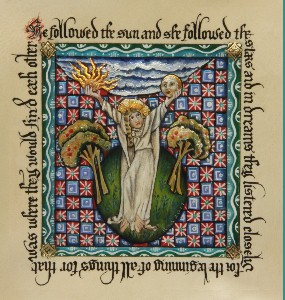 He followed the sun and she followed the
stars and in dreams they listened closely
for the beginning of all things for that
was where they would find each other